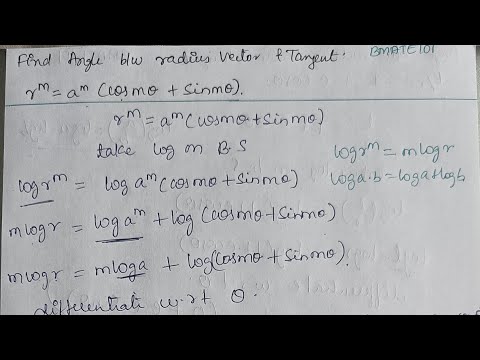 Find Angle b/w radius vector & Tangent. BMATE101
r^m = a^m (cosmθ + sinmθ).
r^m = a^m (cosmθ + sinmθ)
take log on B S
log r^m = m log r
log r^m = log a^m (cosmθ + sinmθ)
log a.b = log a + log b
m log r = log a^m + log (cosmθ + sinmθ)
m log r = m log a + log (cosmθ + sinmθ).
differentiate w.r.t θ.